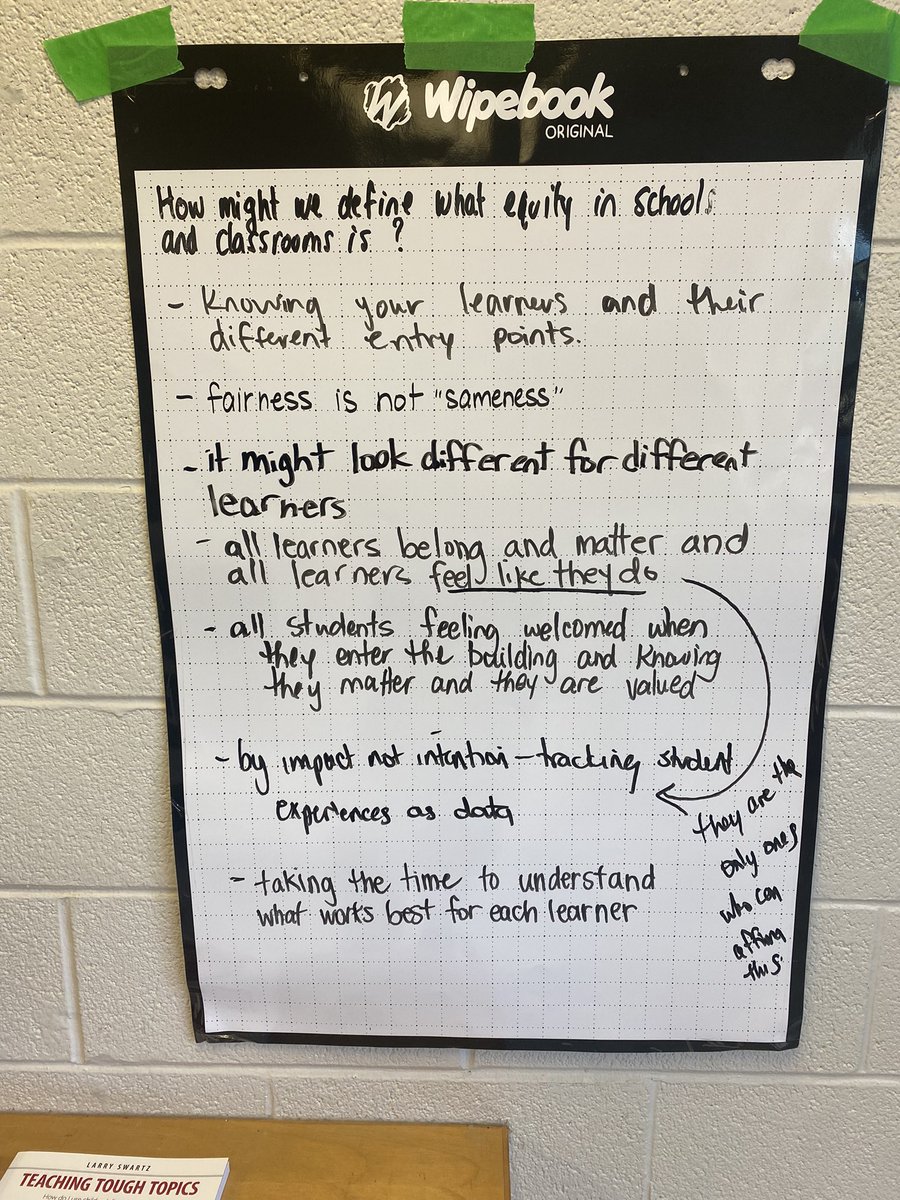 Wipebook
ORIGINAL
How might we define what equity in schools
and classrooms is?
- Knowing your learners and their
different entry points.
- fairness is not "sameness"
- it might look different for different
learners
- all learners belong and matter and
all learners feel like they do
- all students feeling welcomed when
they enter the building and knowing
they matter and they are valued
- by impact not intention - tracking student
experiences as data
they are the
only ones
who can
affirm
this
- taking the time to understand
what works best for each learner
LARRY SWARTZ
TEACHING TOUGH TOPICS
How do I use